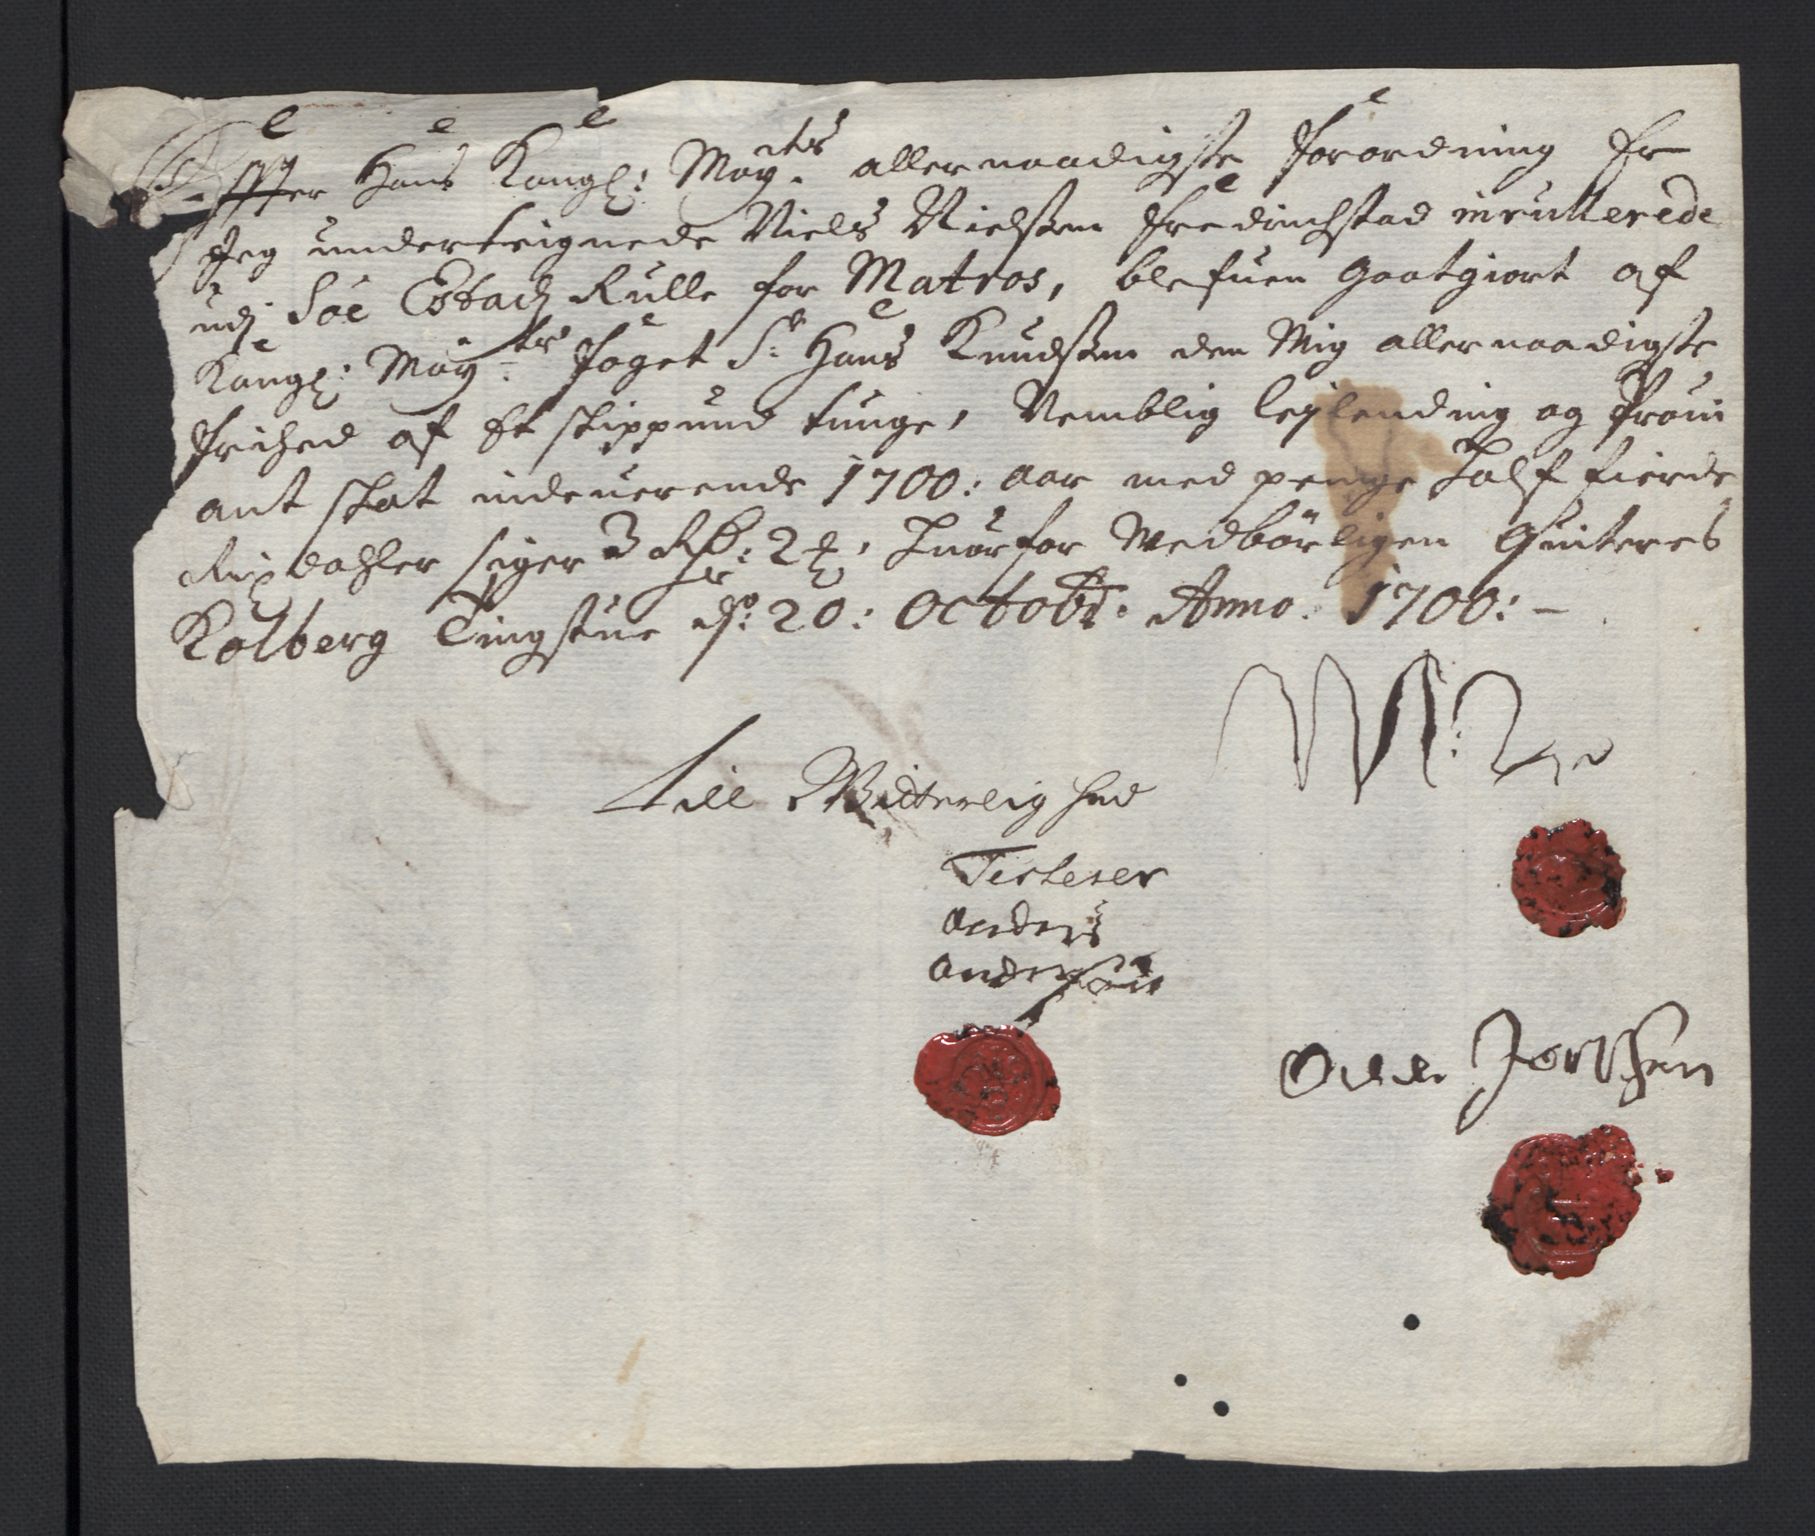 Effter Hans Kongl: May:ts allernaadigste forordning Er
Jeg underteignede Niels Nielssen fredrichstad inrullerede
udj Söe Esbach Rulle for Matros, blefuen gaatgiort af
Kongl: May:ts foget Sr: Hans Knudssen den Mig allernaadigste
frihed af Et skippund tunge, Nemblig lejlending og Proui
ant skat indeuerende 1700: aar med penge Half fierde
Rixdahler siger 3 Rdr: 2 , Huorfor Wedbörligen Quiteres
Kolberg Tingstue d: 20: Octobr: Anno: 1700: –
Till Witterlighed
Testerer
Anders
Anderssen
Odde Jörssen